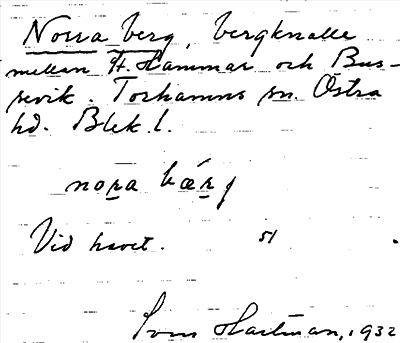 Norra berg, bergknalle
mellan St. Hammar och Bus-
sevik. Torhamns sn. Östra
hd. Blek. l.
nora bærj
Vid havet. 51
Sven Hartman, 1932